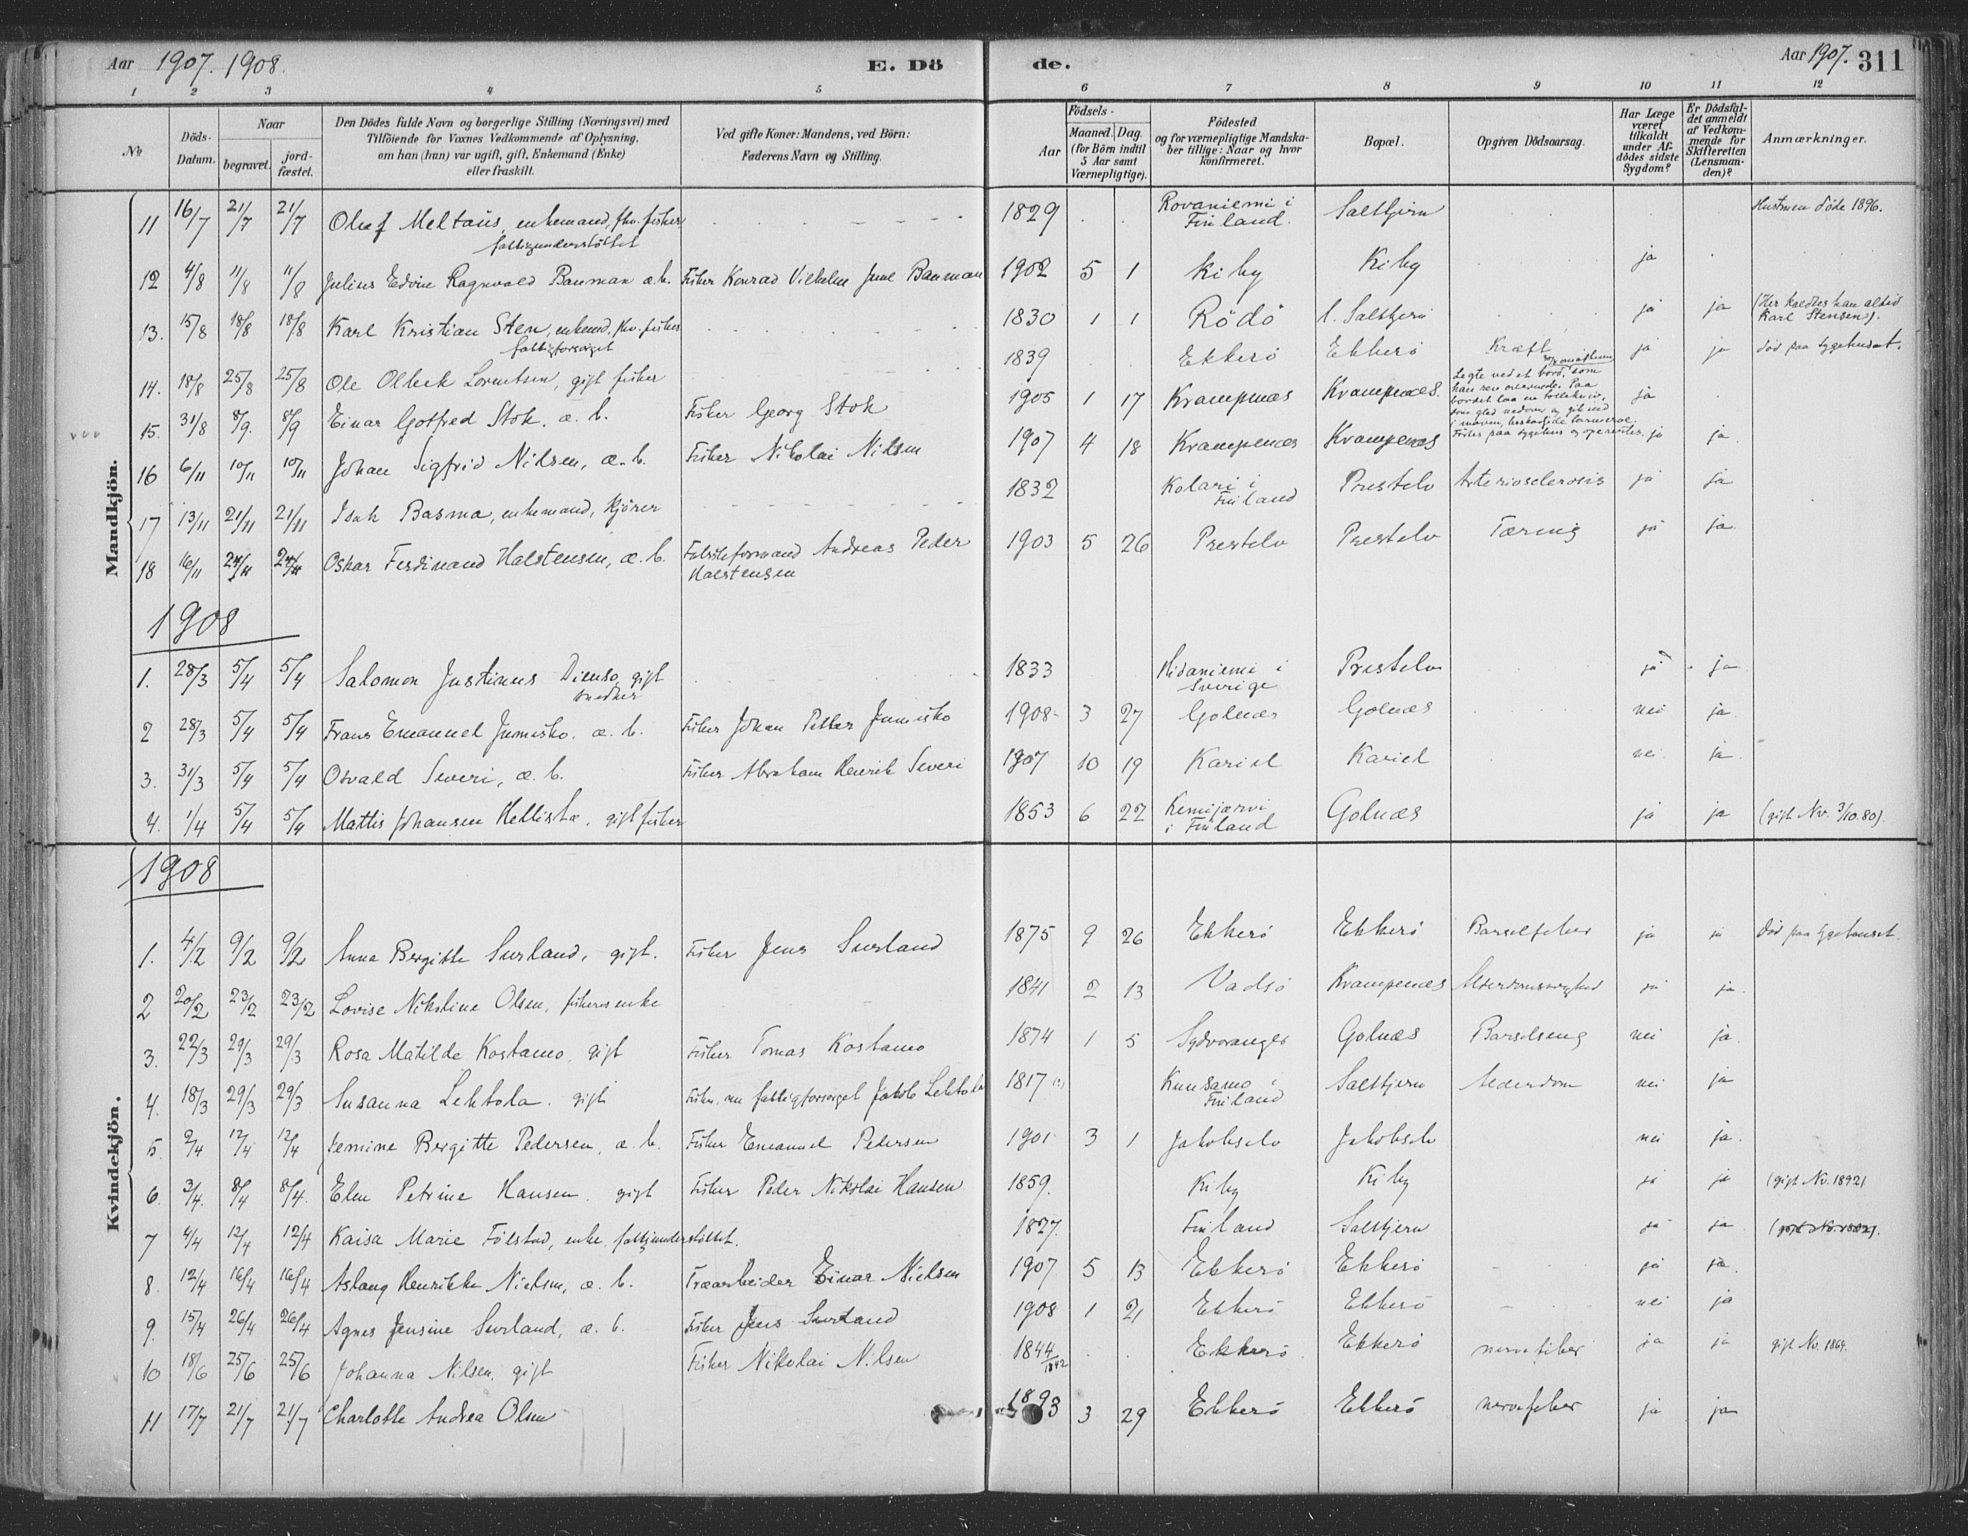 Aar 1907. 1908.
E. Dö
de.
Aar 1907. 311
1 2 3 4 5 6 7 8 9 10 11 12
№
Döds-Datum.
Naar
begravet.
jord-fæstet.
Den Dödes fulde Navn og borgerlige Stilling (Næringsvei) med
Tilföiende for Voxnes Vedkommende af Oplysning,
om han (hun) var ugift, gift, Enkemand (Enke)
eller fraskilt.
Ved gifte Koner: Mandens, ved Börn:
Faderens Navn og Stilling.
Födsels-
Aar
Maaned. Dag.
(for Börn indtil
5 Aar samt
Værnepligtige).
Födested
og for værnepligtige Mandska-
ber tillige: Naar og hvor
konfirmeret.
Bopæl.
Opgiven Dödsaarsag.
Har Læge
været
tilkaldt
under Af-
dödes sidste
Sygdom?
Er Dödsfal-
det anmeldt
af Vedkom-
mende for
Skifteretten
(Lensman-
den)?
Anmærkninger.
Mandkjön.
11 16/7 21/7 21/7 Olaf Meltaus, enkemand, fhv. fisker fattigunderstöttet 1829 Rovaniemi i Finland. Saltbjern Hustruen döde 1896.
12 4/8 11/8 11/8 Julius Edvin Ragnvald Bauman æ.b. Fisker Konrad Vilhelm Bauman 1902 5 1 Kiby Kiby ja
13. 15/8 18/8 18/8 Karl Kristian Sten, enkemd, fhv. fisker fattigforsörget 1830 1 1 Rödö Saltbjern ja ja (Her kaldtes han altid Karl Stensen).
14. 18/8 25/8 25/8 Ole Olbek Lorentsen, gift fisker 1839 Ekkerö Ekkerö Kræft ja ja död paa sygehuset.
15. 31/8 8/9. 8/9 Einar Gotfred Stok. æ. b. Fisker Georg Stok 1905 1 17 Krampenæs Krampenæs. Legte ved et bord, som han rev overende. Paa bordet laa en som gled nedover og git ind i maven, beskadigede tarmene. Förtes paa sygehus og opereretes. ja
16 6/11 10/11 10/11 Johan Sigfrid Nilsen, æ. b. Fisker Nikolai Nilsen 1907 4 18 Krampenæs Krampenæs ja ja.
17 13/11 21/11 21/11 Isak Basma, enkemand, kjörer 1832 Kolari i Finland Prestelv Arteriosclerosis ja ja
18 16/11 24/11 24/11 Oskar Ferdinand Halstensen, æ. b. Fabrikformand Andreas Peder Halstensen 1903 5 26 Prestelv Prestelv Tæring ja ja.
1908
1. 28/3 5/4 5/4 Salomon Justinus gift snedker 1833 Hidaniemi i Sverige Prestelv ja ja
2 28/3 5/4 5/4 Frans Emanuel Jumisko. æ. b. Fisker Johan Petter Jumisko 1908 3 27 Golnæs Golnæs nei ja
3. 31/3 5/4 5/4 Osvald Severi, æ. b. Fisker Abraham Henrik Severi 1907 10 19 Kariel Kariel nei ja.
4. 1/4 5/4 5/4 Mattis Johansen Hellista, gift fisker 1853 6 22 Kemijærvi i Finland Golnæs ja ja (gift Nv. 3/10.80).
Kvindekjön.
1908
1. 4/2 9/2 9/2 Anna Bergitte Surland, gift. Fisker Jens Surland 1875 9 26 Ekkerö Ekkerö Barselfeber ja ja död paa sygehuset.
2 20/2 23/2 23/2 Lovise Nikoline Olsen, fiskers enke 1841 2 13 Vadsö Krampenæs Alderdomssvaghed ja ja.
3. 22/3 29/3 29/3 Rosa Matilde Kostamo, gift Fisker Tomas Kostamo 1874 1 5 Sydvaranger Golnæs Barselseng nei ja.
4. 18/3 29/3 29/3 Susanna Lehtola. gift Fisker, nu fattigforsörget Jakob Lehtola 1817 Kuusamo i Finland Saltbjern Alderdom nei ja
5. 2/4 12/4 12/4 Jemine Bergitte Pedersen, æ. b. Fisker Emanuel Pedersen 1901 3 1 Jakobselv Jakobselv nei ja.
6. 3/4. 8/4 8/4. Elen Petrine Hansen. gift Fisker Peder Nikolai Hansen 1859. Kiby Kiby ja ja (gift Nv. 1892)
7 4/4 12/4 12/4 Kaisa Marie Fölstad, enke, fattigunderstöttet. 1827. Finland Saltbjern ja ja.
8. 12/4 16/4 16/4 Aslaug Henrikke Nielsen, æ. b. Træarbeider Einar Nielsen 1907 5 13 Ekkerö Ekkerö ja ja.
9. 15/4 26/4 26/4 Agnes Jensine Surland, æ. b. Fisker Jens Surland 1908 1 21 Ekkerö Ekkerö nei ja
10 18/6 25/6 25/6 Johanna Nilsen, gift Fisker Nikolai Nilsen 1844/1842 Ekkerö Ekkerö nervefeber ja ja gift Nv. 1864.
11 17/7 21/7 21/7 Charlotte Andrea Olsen 1893 3 29 Ekkerö Ekkerö nervefeber ja ja